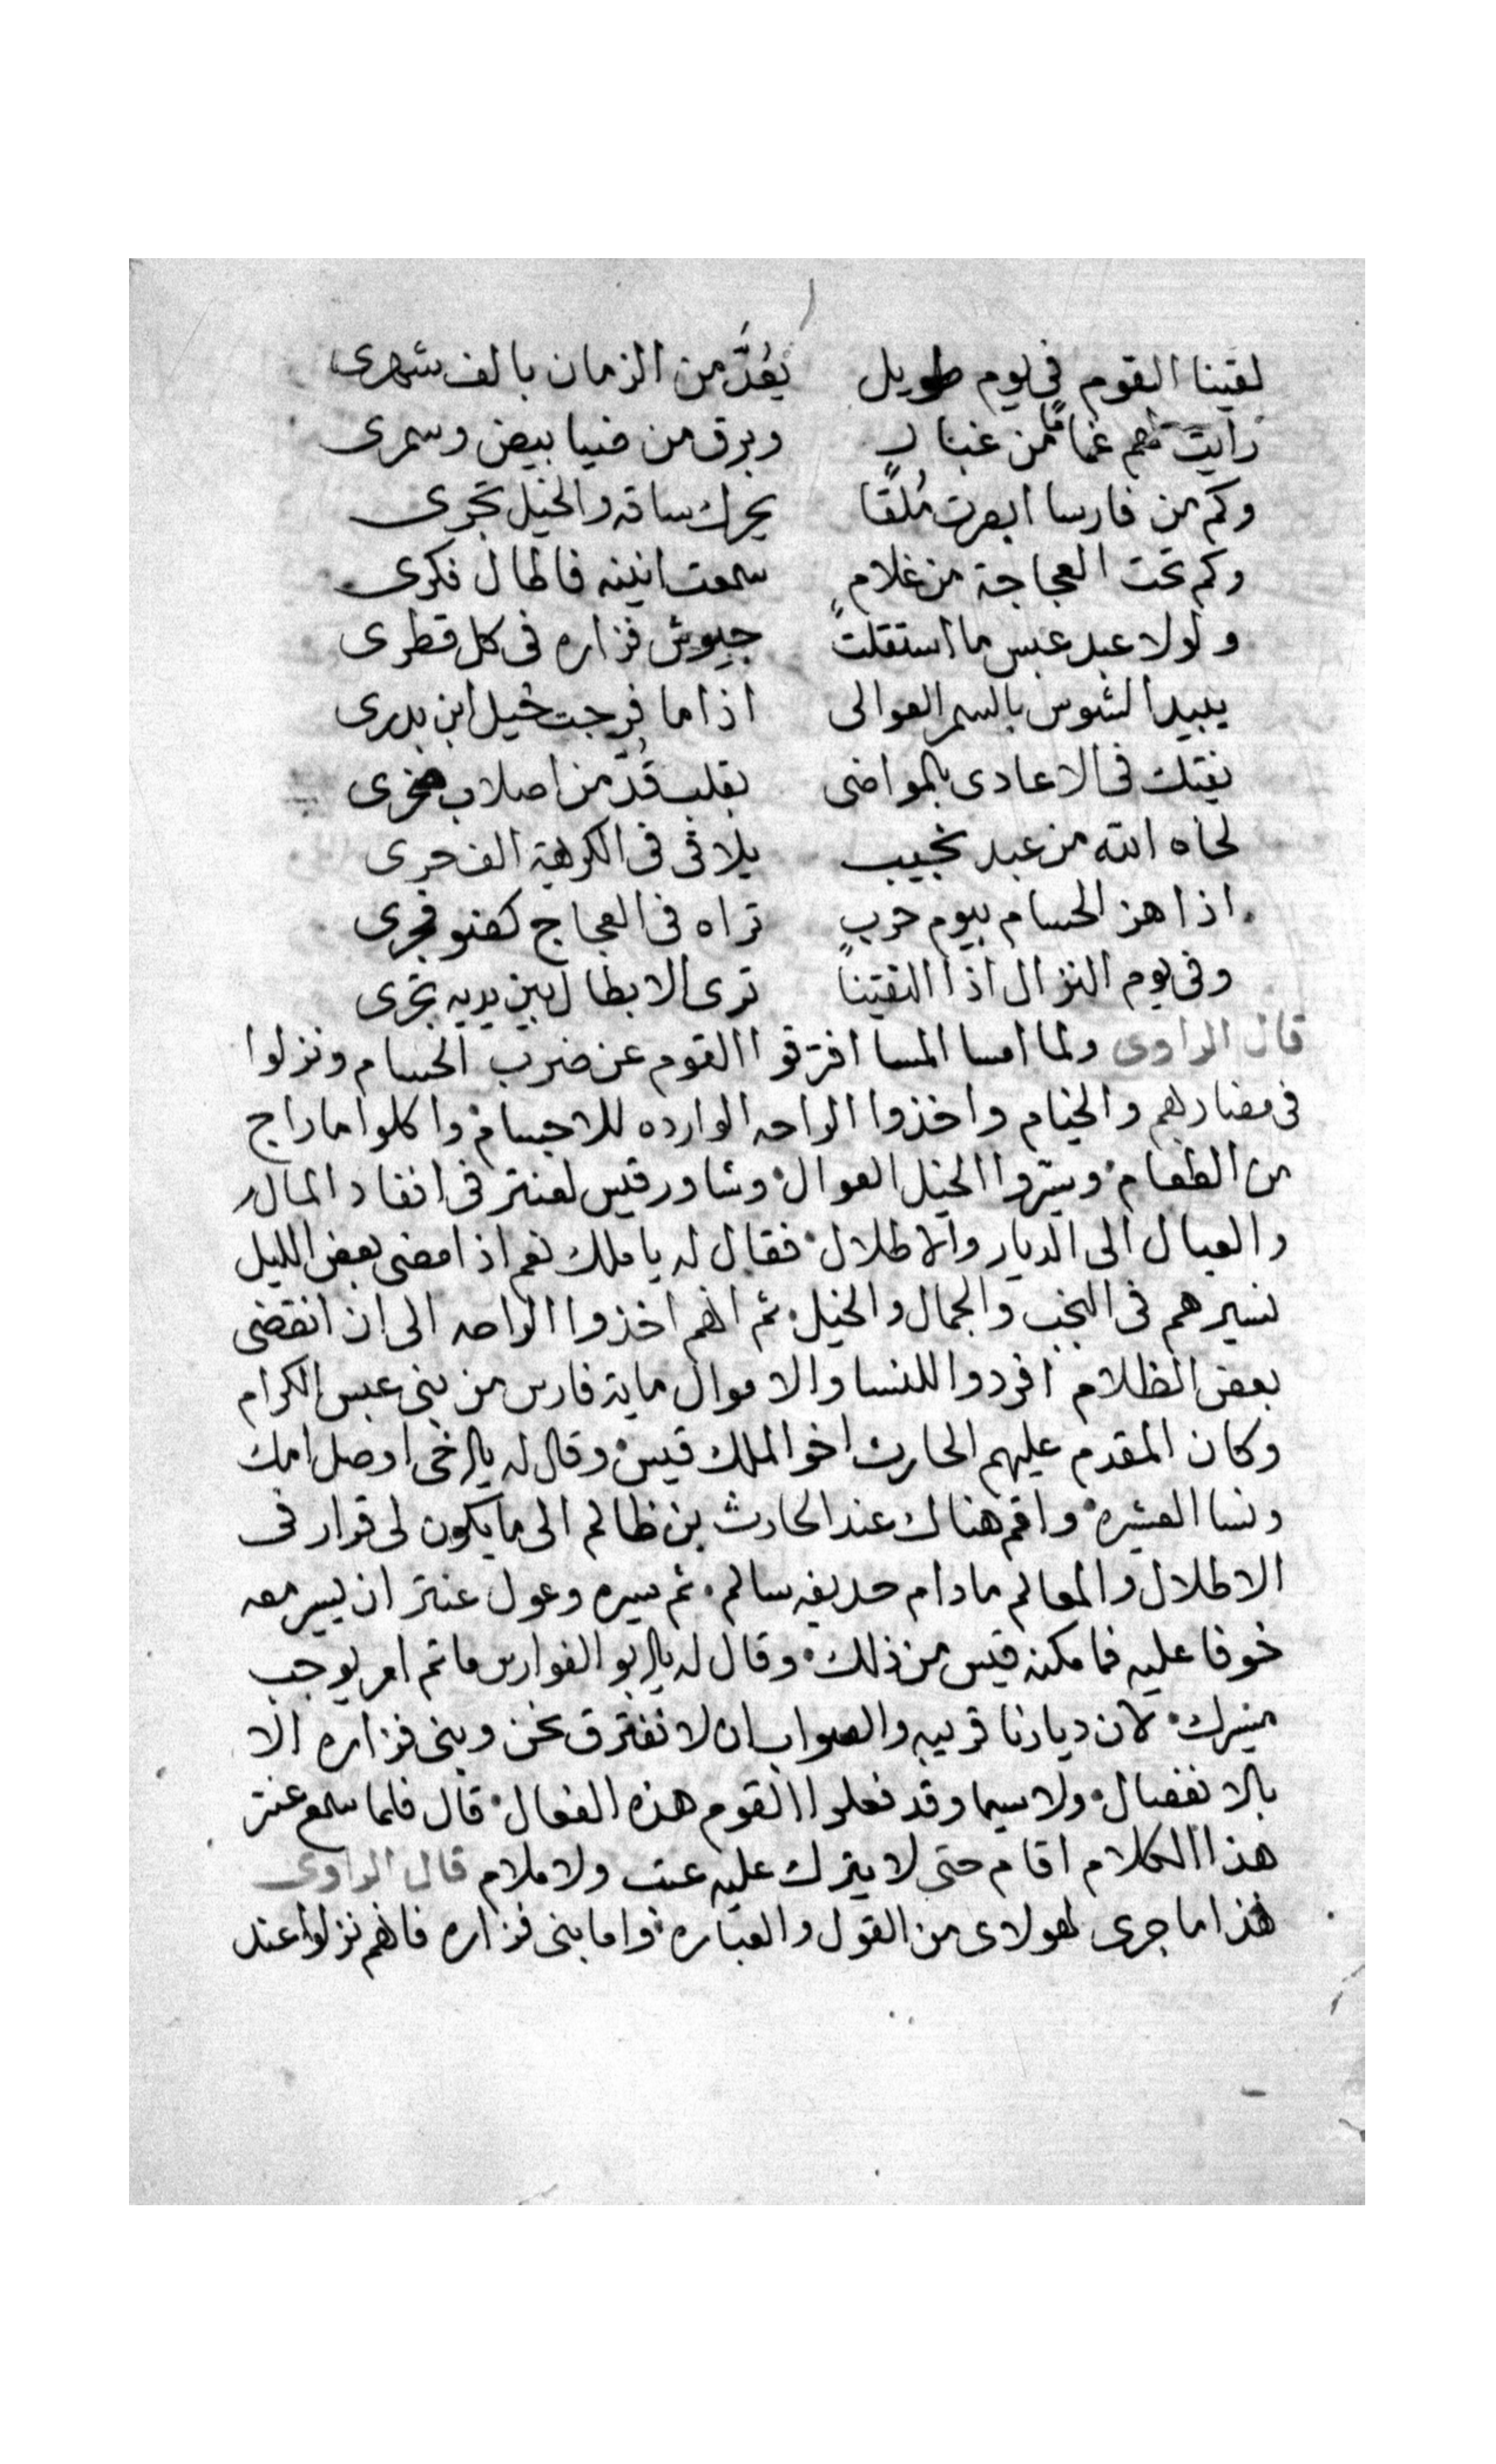 لقينا القوم في يوم طويل يُعَدُّ من الزمان بالف شهرى
رايت لهم غمامًا من غبار وبرق من ضيا بيض وسمرى
وكم من فارسا ابصرت مُلقًا يحرك ساقه والخيل تجرى
وكم تحت العجاجة من غلامٍ سمعت انينه فاطال فكرى
ولولا عبد عبس ما استقلت جيوش فزاره فى كل قطرى
يبيد الشوس بالسمر العوالى اذا ما فرجت خيل ابن بدرى
نفتك فى الاعادى بالمواضى بقلب قُدَّ من اصلاب صخرى
لحاه الله من عبد نجيب يلاقى فى الكرهية الف حرى
اذا هز الحسام بيوم حربٍ تراه فى العجاج كضو فجرى
وفى يوم النزال اذا التقينا ترى الابطال بين يديه تجرى
قال الراوى ولما امسا المسا افترقوا القوم عن ضرب الحسام ونزلوا
فى مضاربهم والخيام واخذوا الراحه الوارده للاجسام واكلوا ما راج
من الطعام وسيروا الخيل العوال وشاور قيس لعنتر فى انفاد المال
والعيال الى الديار والاطلال فقال له يا ملك نعم اذا مضى بعض الليل
نسيرهم فى النجب والجمال والخيل ثم انهم اخذوا الراحه الى ان انقضى
بعض الظلام افردوا للنسا والاموال ماية فارس من بنى عبس الكرام
وكان المقدم عليهم الحارث اخو الملك قيس وقال له ياخى اوصل امك
ونسا العشيره واقم هناك عند الحارث بن ظالم الى ما يكون لى قرار فى
الاطلال والمعالم ما دام حديفه سالم ثم سيره وعول عنتر ان يسير معه
خوفا عليه فما مكنه قيس من ذلك وقال له يابو الفوارس ما تم امر يوجب
مسيرك لان ديارنا قريبه والصواب ان لا نفترق نحن وبنى فزاره الا
بالانفصال ولا سيما وقد فعلوا القوم هذه الفعال قال فلما سمع عنتر
هذا الكلام اقام حتى لا يترك عليه عتب ولا ملام قال الراوى
هذا ما جرى لهولاى من القول والعباره واما بنى فزاره فانهم نزلوا عند